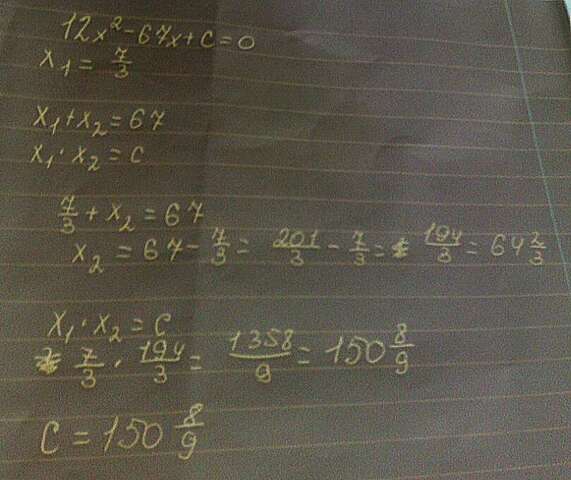 12x² - 67x + c = 0
x₁ = 7/3
x₁ + x₂ = 67
x₁ · x₂ = c
7/3 + x₂ = 67
x₂ = 67 - 7/3 = 201/3 - 7/3 = 194/3 = 64 2/3
x₁ · x₂ = c
7/3 · 194/3 = 1358/9 = 150 8/9
C = 150 8/9